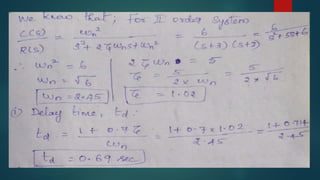 We know that; For II order system
C(S)/R(S) = ωn²/S²+2ζωnS+ωn² = 6/(S+3)(S+2) = 6/S²+5S+6
∴ ωn² = 6 2ζωn = 5
ωn = √6 ζ = 5/2×ωn = 5/2×√6
ωn = 2.45 ζ = 1.02
(i) Delay time, td:
td = 1+0.7ζ/ωn = 1+0.7×1.02/2.45 = 1+0.714/2.45
td = 0.69 sec